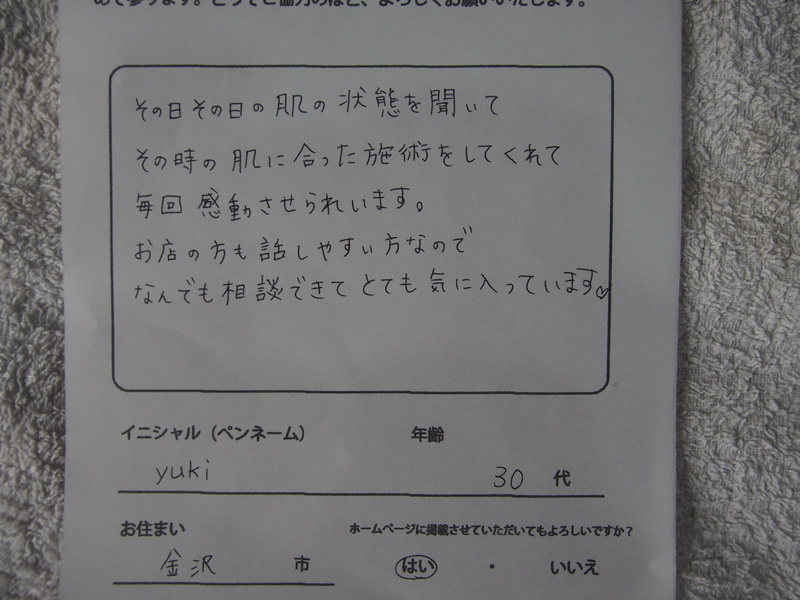 めて参ります。どうぞご協力のほど、よろしくお願いいたします。
その日その日の肌の状態を聞いて
その時の肌に合った施術をしてくれて
毎回感動させられいます。
お店の方も話しやすい方なので
なんでも相談できてとても気に入っています♡
イニシャル（ペンネーム） 年齢
yuki 30 代
お住まい ホームページに掲載させていただいてもよろしいですか？
金沢 市 はい ・ いいえ